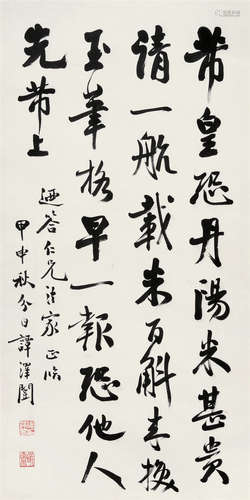 芾皇恐丹陽米甚貴
請一航載米百斛換
玉筆格早一報恐他人
先芾上
答仁兄法家正臨
甲申秋分日譚澤闓